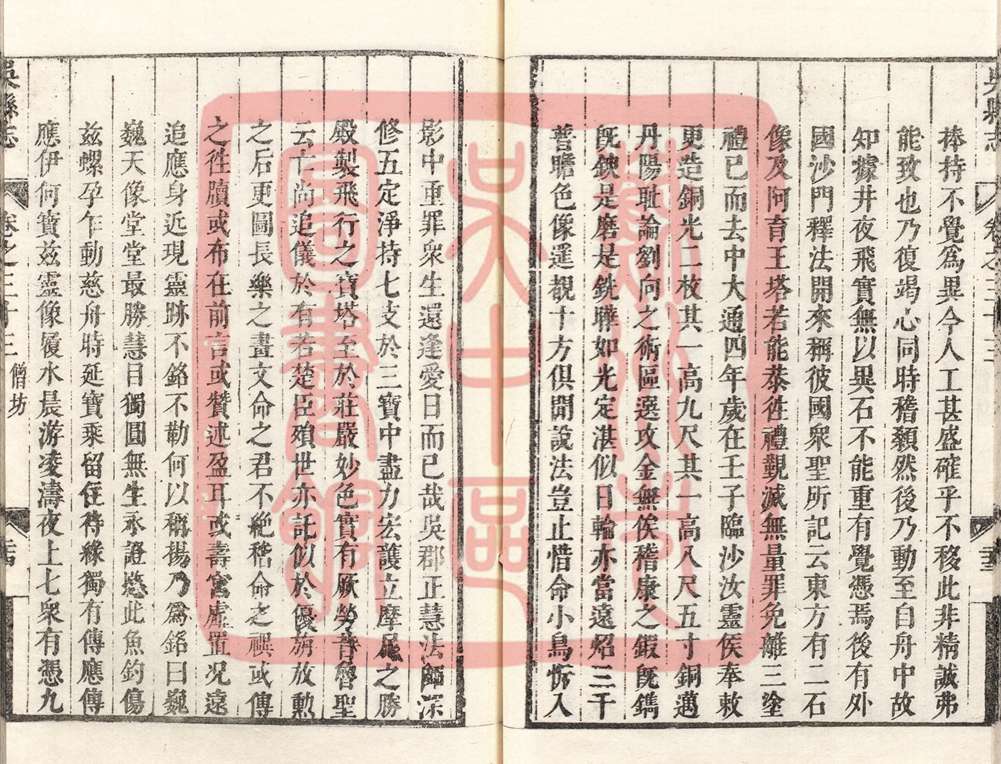 吳縣志 卷之三十三
捧持不覺為異今人工甚盛確乎不移此非精誠弗
能致也乃復竭心同時稽顙然後乃動至白舟中故
知據井夜飛實無以異石不能重有覺憑焉後有外
國沙門釋法開來稱彼國衆聖所記云東方有二石
像及阿育王塔若能恭徃禮觀滅無量罪免離三塗
禮已而去中大通四年歲在壬子臨沙汝靈侯奉敕
更造銅光二枚其一高九尺其一高八尺五寸銅邁
丹陽耻論劉向之術區選攻金無俟稽康之鍛旣鐫
旣鍥是磨是銑聯如光定湛似日輪亦當遠炤三千
善瞻色像遥覩十方俱聞說法豈止惜命小鳥忻入
影中重罪衆生還逢愛日而已哉吳郡正慧法師深
修五定淨持七支於三寶中盡力宏護立摩尼之勝
殿製飛行之寶塔至於莊嚴妙色實有厥勞昔魯聖
云亡尚追儀於有若楚臣殞世亦託似於優旃放勳
之后更圖長樂之畫文命之君不絶稽命之禩或傳
之徃牘或布在前言或贊述盈耳或壽宮虛置況遠
追應身近現靈跡不銘不勒何以稱揚乃為銘曰巍
巍天像堂堂最勝慧目獨圓無生永證愍此魚鈞傷
兹螺孕乍動慈舟時延寶乘留住待緣獨有傳應傳
應伊何寶兹靈像履水晨游凌濤夜上七衆有憑九
吳縣志 卷之三十三 僧坊